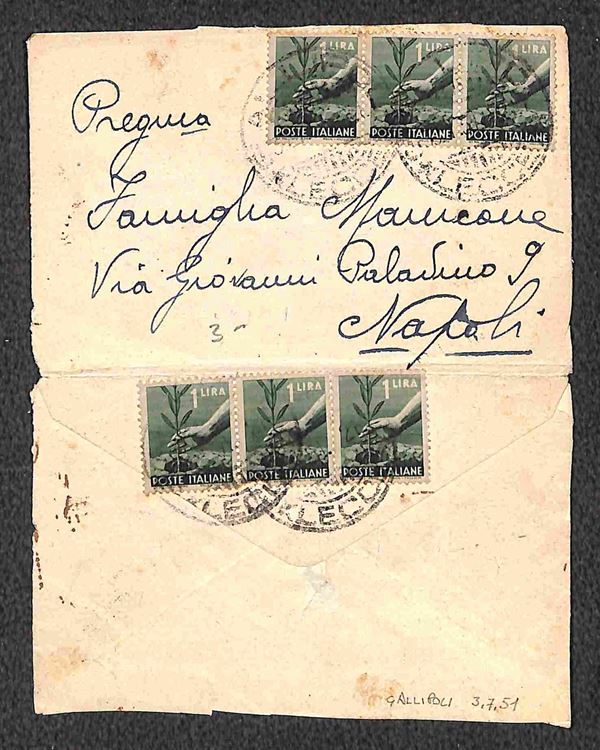 1 LIRA 1 LIRA 1 LIRA
POSTE ITALIANE POSTE ITALIANE POSTE ITALIANE
LECC LECC
Pregma
Famiglia Manicone
Via Giovanni Paladino 9
Napoli
3
1 LIRA 1 LIRA 1 LIRA
POSTE ITALIANE POSTE ITALIANE POSTE ITALIANE
LECC
GALLIPOLI 3.7.51